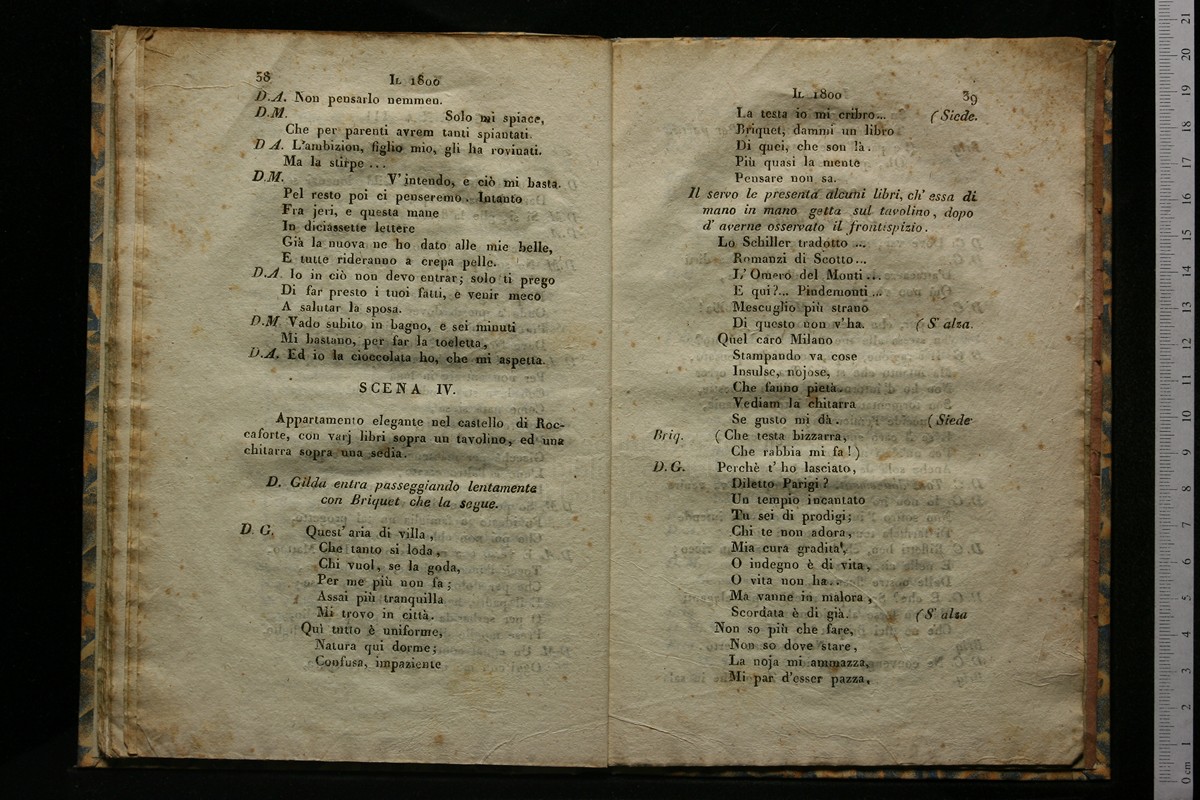 38
IL 1800
D.A. Non pensarlo nemmen.
D.M. Solo mi spiace,
Che per parenti avrem tanti spiantati.
D A. L'ambizion, figlio mio, gli ha rovinati.
Ma la stirpe ...
D.M. V'intendo, e ciò mi basta.
Pel resto poi ci penseremo. Intanto
Fra jeri, e questa mane
In diciassette lettere
Già la nuova ne ho dato alle mie belle,
E tutte rideranno a crepa pelle.
D.A. Io in ciò non devo entrar; solo ti prego
Di far presto i tuoi fatti, e venir meco
A salutar la sposa.
D.M Vado subito in bagno, e sei minuti
Mi bastano, per far la toeletta,
D.A. Ed io la cioccolata ho, che mi aspetta.
SCENA IV.
Appartamento elegante nel castello di Roc-
caforte, con varj libri sopra un tavolino, ed una
chitarra sopra una sedia.
D. Gilda entra passeggiando lentamente
con Briquet che la segue.
D G. Quest'aria di villa,
Che tanto si loda,
Chi vuol, se la goda,
Per me più non fa;
Assai più tranquilla
Mi trovo in città.
Qui tutto è uniforme,
Natura qui dorme;
Confusa, impaziente
IL 1800
39
La testa io mi cribro... (Siede.
Briquet, dammi un libro
Di quei, che son là.
Più quasi la mente
Pensare non sa.
Il servo le presenta alcuni libri, ch'essa di
mano in mano getta sul tavolino, dopo
d'averne osservato il frontispizio.
Lo Schiller tradotto ...
Romanzi di Scotto...
L'Omero del Monti...
E qui?... Pindemonti...
Mescuglio più strano
Di questo non v'ha. (S'alza.
Quel caro Milano
Stampando va cose
Insulse, nojose,
Che fanno pietà.
Vediam la chitarra
Se gusto mi dà. (Siede
Briq. (Che testa bizzarra,
Che rabbia mi fa!)
D.G. Perchè t'ho lasciato,
Diletto Parigi?
Un tempio incantato
Tu sei di prodigi;
Chi te non adora,
Mia cura gradita,
O indegno è di vita,
O vita non ha..
Ma vanne in malora,
Scordata è di già. (S'alza
Non so più che fare,
Non so dove stare,
La noja mi ammazza,
Mi par d'esser pazza,